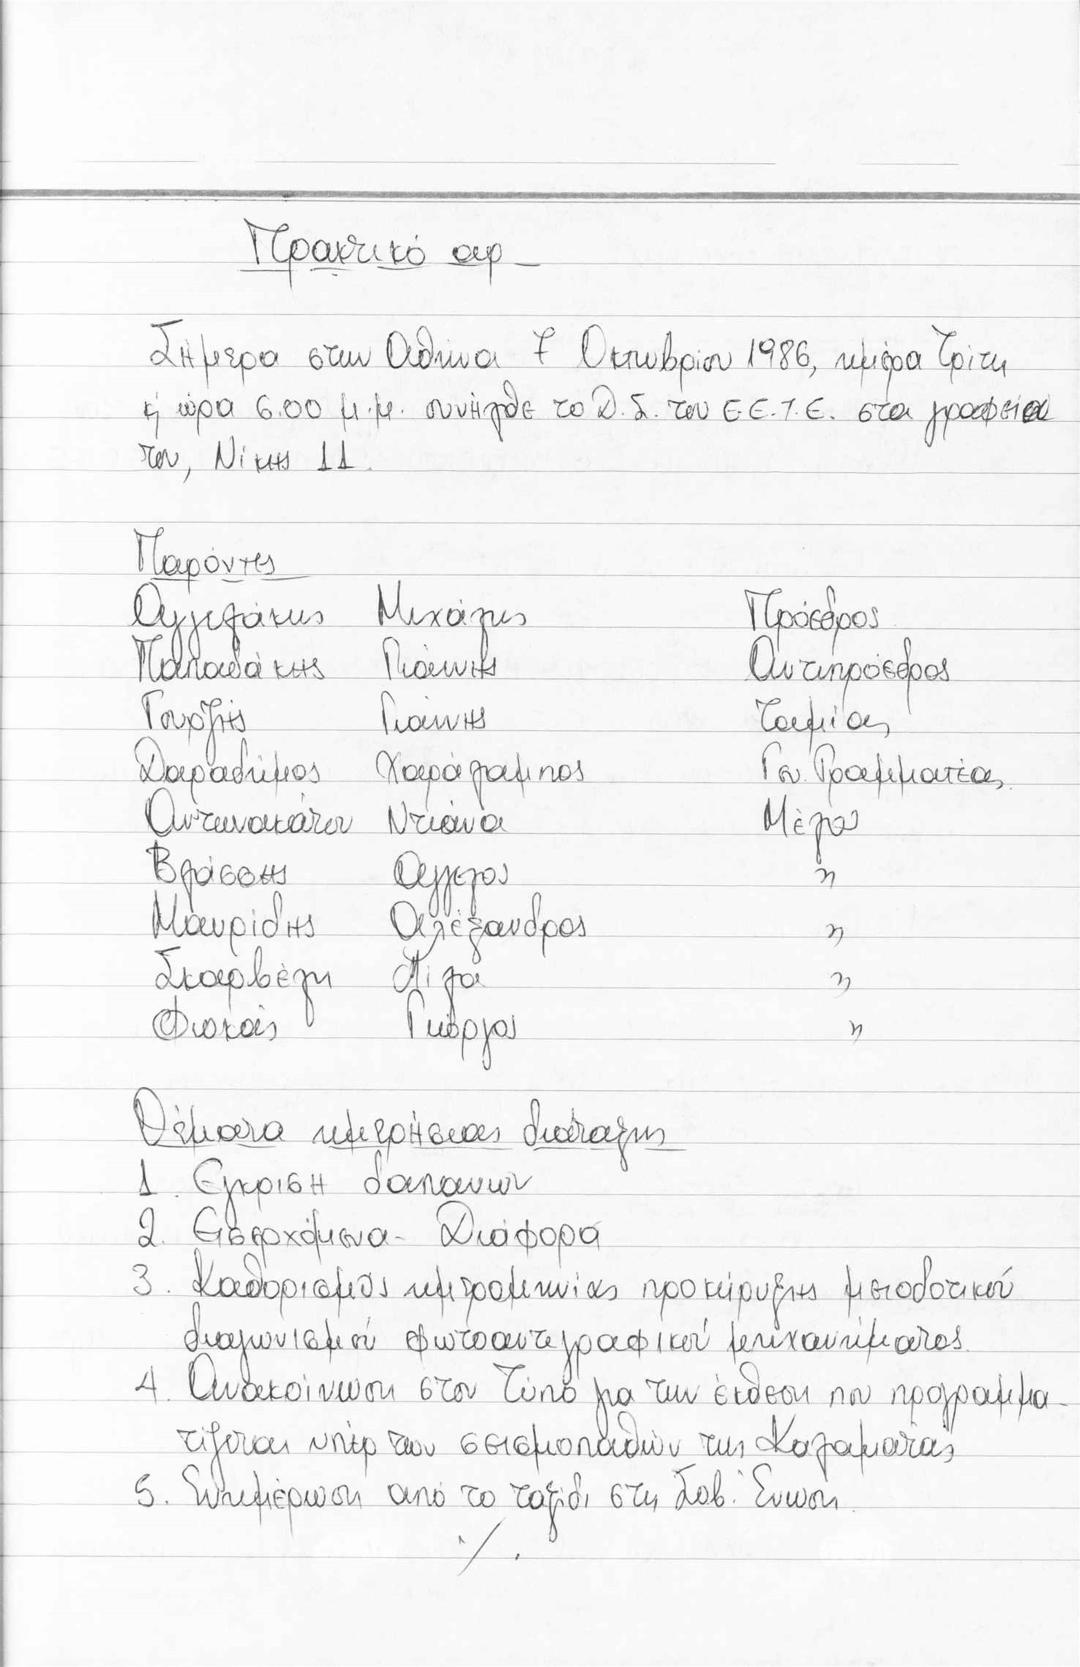 Πρακτικό αρ _
Σήμερα στην Αθήνα 7 Οκτωβρίου 1986, ημέρα Τρίτη
ή ώρα 6.00 μ.μ. συνήλθε το Δ.Σ. του Ε.Ε.Τ.Ε. στα γραφεία
του, Νίκης 11.
Παρόντες
Αγγελάκης Μιχάλης Πρόεδρος
Παπαδάκης Γιάννης Αντιπρόεδρος
Γουρζής Γιάννης Ταμίας
Δαραδήμος Χαράλαμπος Γεν. Γραμματέας
Αντωνακάτου Ντιάνα Μέλος
Βλάσσης Άγγελος "
Μαυρίδης Αλέξανδρος "
Σκαρβέλη Λίλα "
Φωκάς Γιώργος "
Θέματα ημερήσιας διάταξης
1. Έγκριση δαπανών
2. Εισερχόμενα - Διάφορα
3. Καθορισμός ημερομηνίας προκήρυξης μειοδοτικού
διαγωνισμού φωτοαντιγραφικού μηχανήματος.
4. Ανακοίνωση στον Τύπο για την έκθεση που προγραμμα-
τίζεται υπέρ των σεισμοπαθών της Καλαμάτας
5. Ενημέρωση από το ταξίδι στη Σοβ. Ένωση.
./.